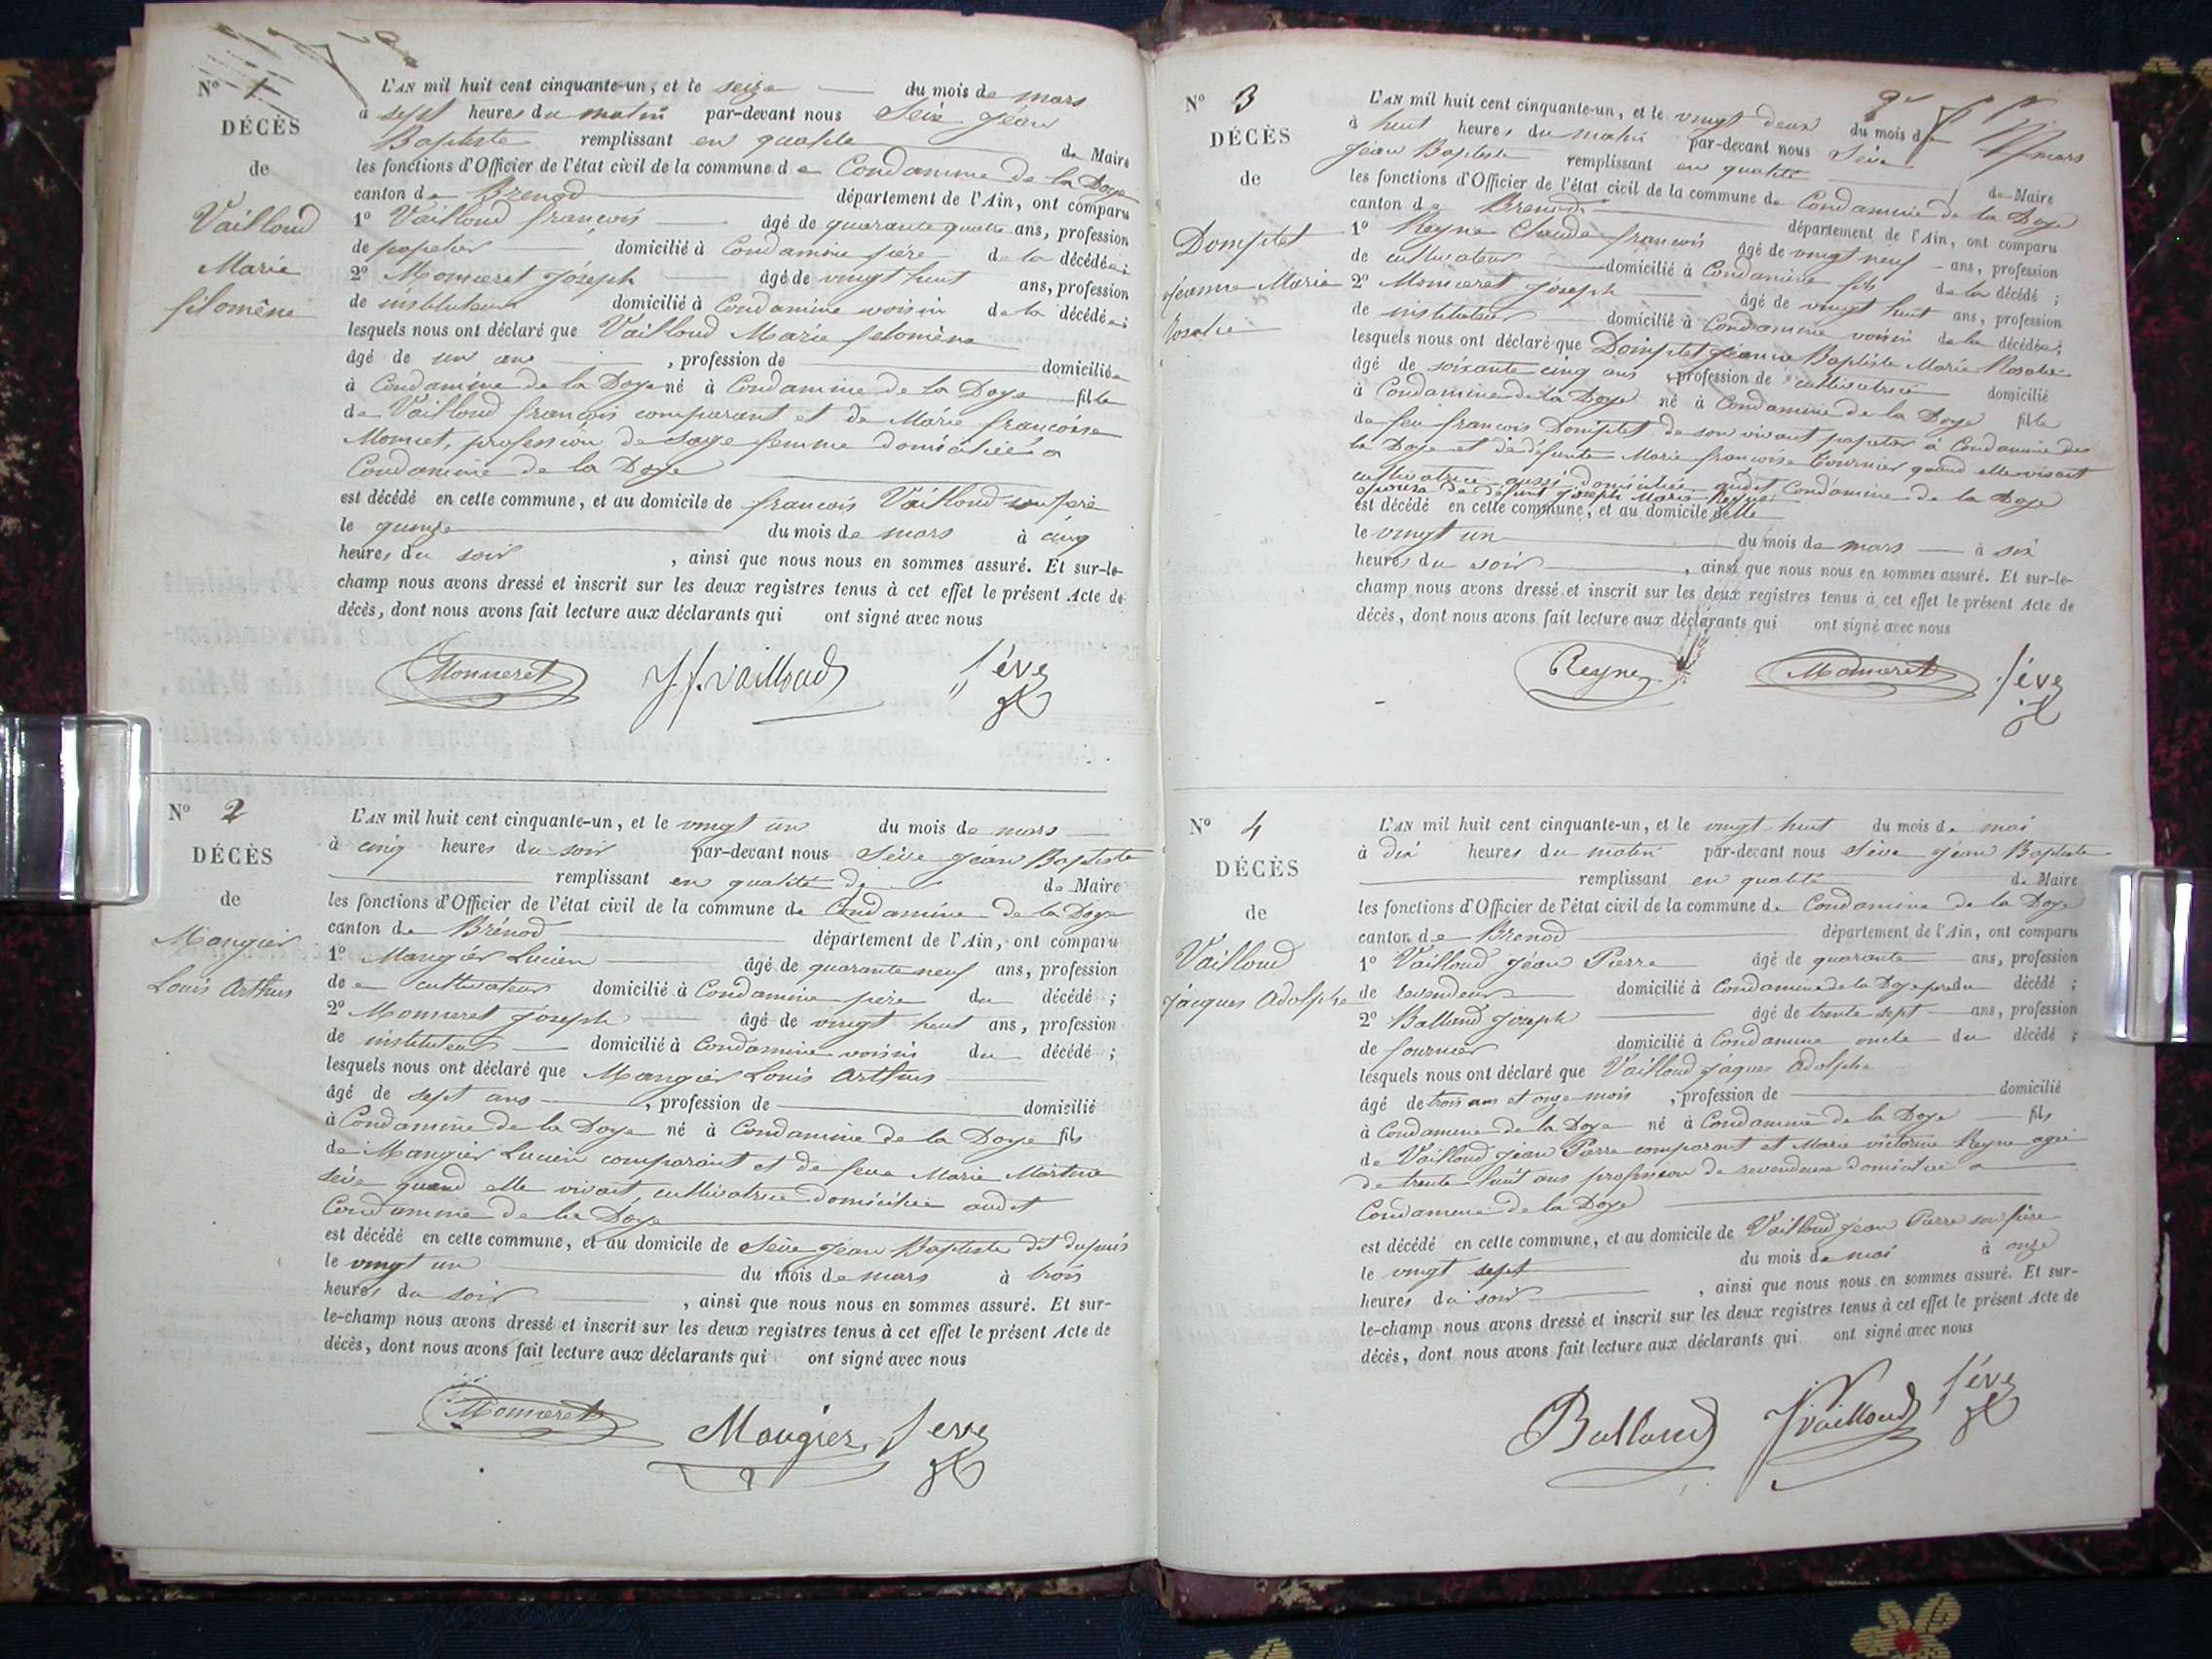 N° 1
DÉCÈS
de
Vailloud
Marie
filomène
L'AN mil huit cent cinquante-un, et le seize du mois de mars
à sept heures du matin par-devant nous Sève Jéan
Baptiste remplissant en qualité de Maire
les fonctions d'Officier de l'état civil de la commune de Condamine de la Doye
canton de Brenod département de l'Ain, ont comparu
1° Vailloud françois âgé de quarante quatre ans, profession
de papetier domicilié à Condamine père de la décédée;
2° Monneret Joseph âgé de vingt huit ans, profession
de instituteur domicilié à Condamine voisin de la décédée;
lesquels nous ont déclaré que Vailloud Marie filomène
âgé de un ans , profession de domiciliée
à Condamine de la Doye né à Condamine de la Doye fille
de Vailloud françois comparant et de Marie françoise
profession de sage femme domiciliée à
Condamine de la Doye
est décédé en cette commune, et au domicile de françois Vailloud son père
le quinze du mois de mars à cinq
heures du soir , ainsi que nous nous en sommes assuré. Et sur-le-
champ nous avons dressé et inscrit sur les deux registres tenus à cet effet le présent Acte de
décès, dont nous avons fait lecture aux déclarants qui ont signé avec nous
Monneret J. f. Vailloud Sève
N° 2
DÉCÈS
de
Mangier
Louis Arthus
L'AN mil huit cent cinquante-un, et le vingt un du mois de mars
à cinq heures du soir par-devant nous Sève Jéan Baptiste
remplissant en qualité de de Maire
les fonctions d'Officier de l'état civil de la commune de Condamine de la Doye
canton de Brénod département de l'Ain, ont comparu
1° Mangier Lucien âgé de quarante neuf ans, profession
de cultivateur domicilié à Condamine père du décédé;
2° Monneret Joseph âgé de vingt huit ans, profession
de instituteur domicilié à Condamine voisin du décédé;
lesquels nous ont déclaré que Mangier Louis Arthus
âgé de sept ans , profession de domicilié
à Condamine de la Doye né à Condamine de la Doye fils
de Mangier Lucien comparant et de feue Marie
Sève quand elle vivait, cultivatrice domiciliée audit
Condamine de la Doye
est décédé en cette commune, et au domicile de Sève Jéan Baptiste dit
le vingt un du mois de mars à trois
heures du soir , ainsi que nous nous en sommes assuré. Et sur-
le-champ nous avons dressé et inscrit sur les deux registres tenus à cet effet le présent Acte de
décès, dont nous avons fait lecture aux déclarants qui ont signé avec nous
Monneret Mangier Seve
N° 3
DÉCÈS
de
Domptet
Jéanne Marie
Rosalie
L'AN mil huit cent cinquante-un, et le vingt deux du mois de mars
à huit heures du matin par-devant nous Sève
Jéan Baptiste remplissant en qualité de Maire
les fonctions d'Officier de l'état civil de la commune de Condamine de la Doye
canton de Brenod département de l'Ain, ont comparu
1° Reyne Claude françois âgé de vingt neuf ans, profession
de cultivateur domicilié à Condamine fils de la décédé;
2° Monneret Joseph âgé de vingt huit ans, profession
de instituteur domicilié à Condamine voisin de la décédée;
lesquels nous ont déclaré que Domptet Jéanne Baptiste Marie Rosalie
âgé de soixante cinq ans , profession de cultivatrice domicilié
à Condamine de la Doye né à Condamine de la Doye fille
de feu françois Domptet de son vivant papetier à Condamine de
la Doye et de défunte Marie françoise Tournier quand elle vivait
cultivatrice aussi domiciliée audit Condamine de la Doye
de défunt Joseph Marie Reyne
est décédé en cette commune, et au domicile delle
le vingt un du mois de mars à six
heures du soir , ainsi que nous nous en sommes assuré. Et sur-le-
champ nous avons dressé et inscrit sur les deux registres tenus à cet effet le présent Acte de
décès, dont nous avons fait lecture aux déclarants qui ont signé avec nous
Reyne Monneret Sève
N° 4
DÉCÈS
de
Vailloud
Jâques Adolphe
L'AN mil huit cent cinquante-un, et le vingt huit du mois de mai
à dix heures du matin par-devant nous Sève Jéan Baptiste
remplissant en qualité de Maire
les fonctions d'Officier de l'état civil de la commune de Condamine de la Doye
canton de Brenod département de l'Ain, ont comparu
1° Vailloud Jéan Pierre âgé de quarante ans, profession
de revendeur domicilié à Condamine de la Doye père du décédé;
2° Balland Joseph âgé de trente sept ans, profession
de fournier domicilié à Condamine oncle du décédé;
lesquels nous ont déclaré que Vailloud Jâques Adolphe
âgé de trois ans et onze mois , profession de domicilié
à Condamine de la Doye né à Condamine de la Doye fils
de Vailloud Jéan Pierre comparant et Marie victorine Reyne agée
de trente huit ans profession de revendeuse domiciliée à
Condamine de la Doye
est décédé en cette commune, et au domicile de Vailloud Jéan Pierre son père
le vingt sept du mois de mai à onze
heures du soir , ainsi que nous nous en sommes assuré. Et sur-
le-champ nous avons dressé et inscrit sur les deux registres tenus à cet effet le présent Acte de
décès, dont nous avons fait lecture aux déclarants qui ont signé avec nous
Balland J Vailloud Sève